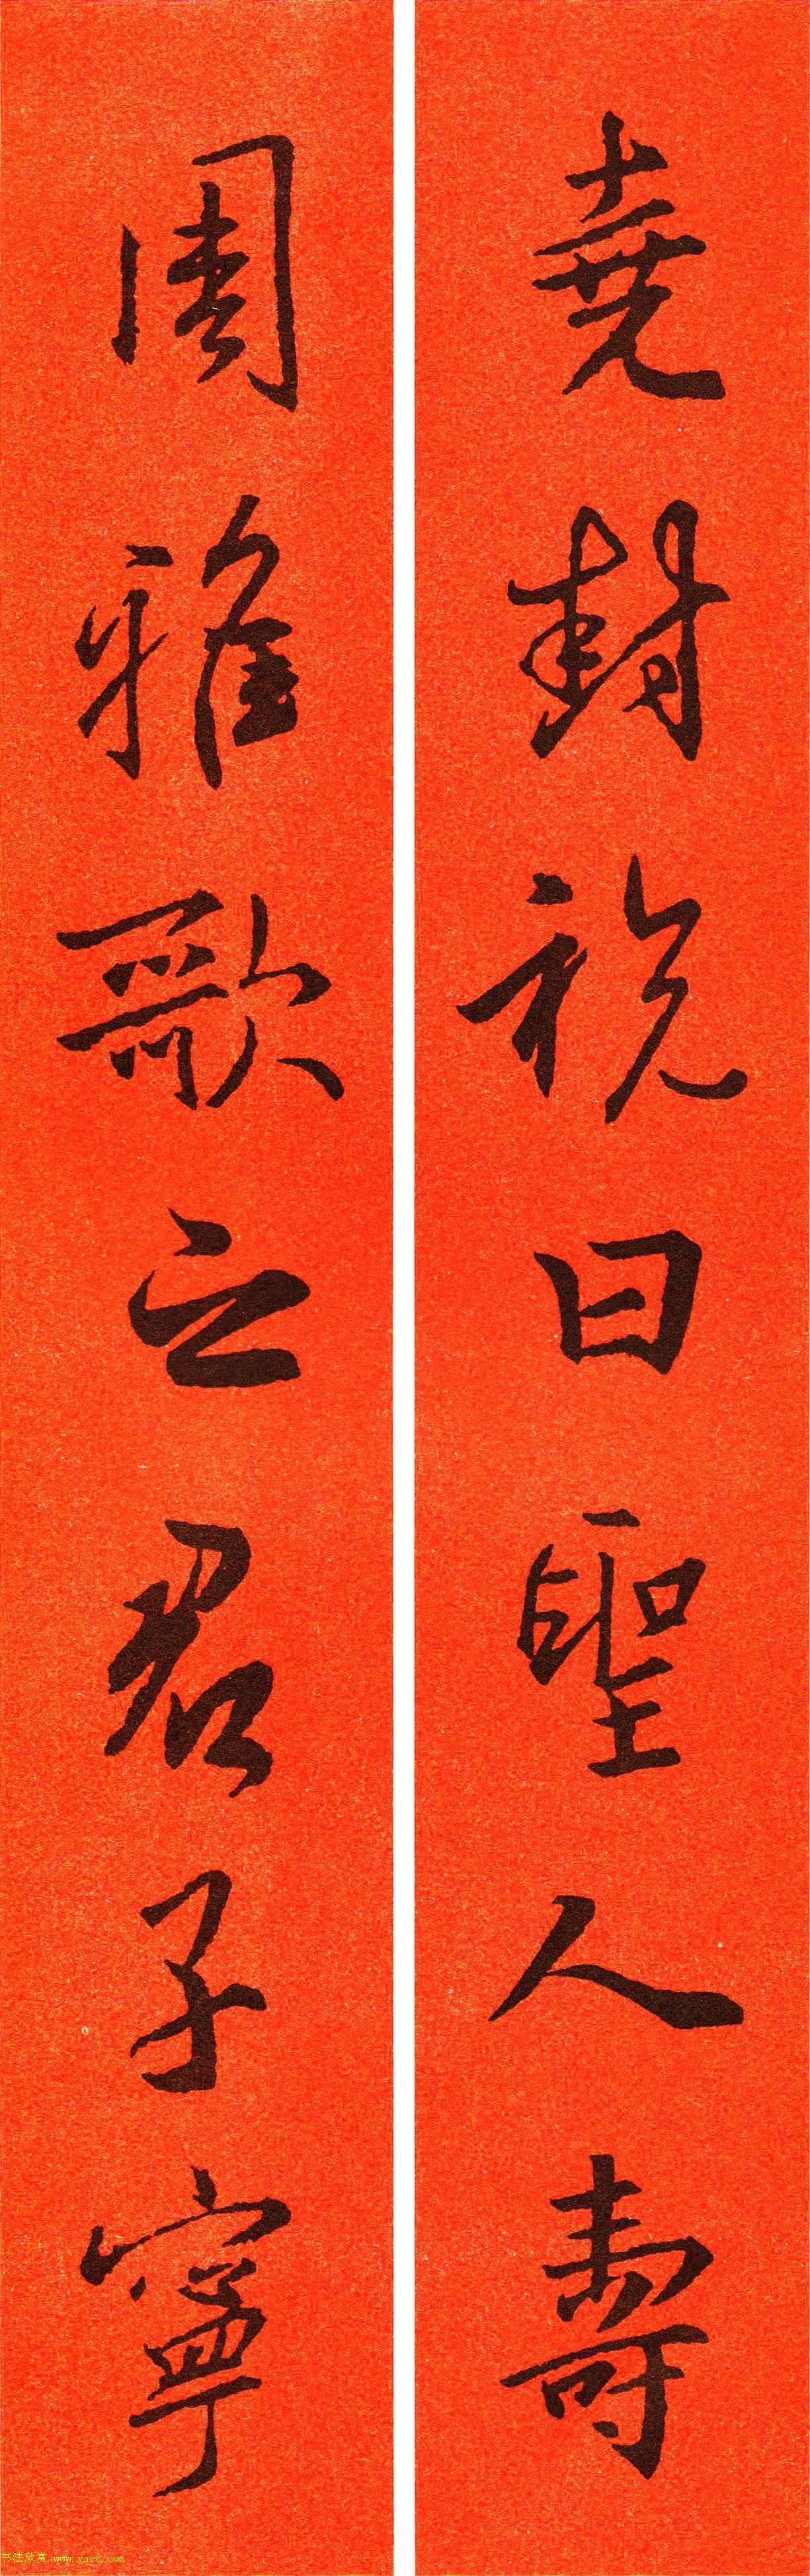 堯封祝曰聖人壽
周雅歌之君子寧
书法欣赏 www.yac8.com